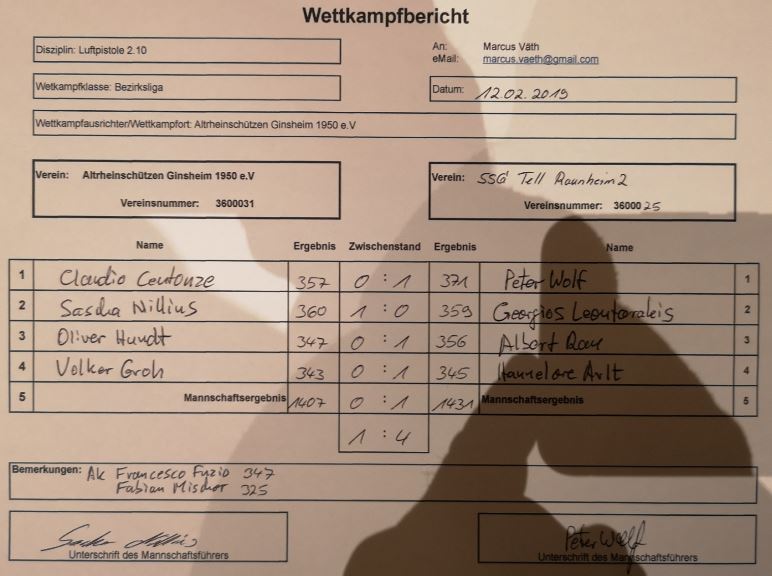 Wettkampfbericht
Disziplin: Luftpistole 2.10
An: Marcus Väth
eMail: marcus.vaeth@gmail.com
Wetkampfklasse: Bezirksliga
Datum: 12.02.2019
Wettkampfausrichter/Wettkampfort: Altrheinschützen Ginsheim 1950 e.V
Verein: Altrheinschützen Ginsheim 1950 e.V
Verein: SSG Tell Raunheim 2
Vereinsnummer: 3600031
Vereinsnummer: 3600025
Name Ergebnis Zwischenstand Ergebnis Name
1 Claudio Centonze 357 0 : 1 371 Peter Wolf 1
2 Sascha Nillius 360 1 : 0 359 Georgios 2
3 Oliver Hundt 347 0 : 1 356 Albert 3
4 Volker Groh 343 0 : 1 345 Hannelore Arlt 4
5 Mannschaftsergebnis 1407 0 : 1 1431 Mannschaftsergebnis 5
1 : 4
Bemerkungen: Ak Francesco Fuzio 347
Fabian Mischer 325
Peter Wolf
Unterschrift des Mannschaftsführers
Unterschrift des Mannschaftsführers